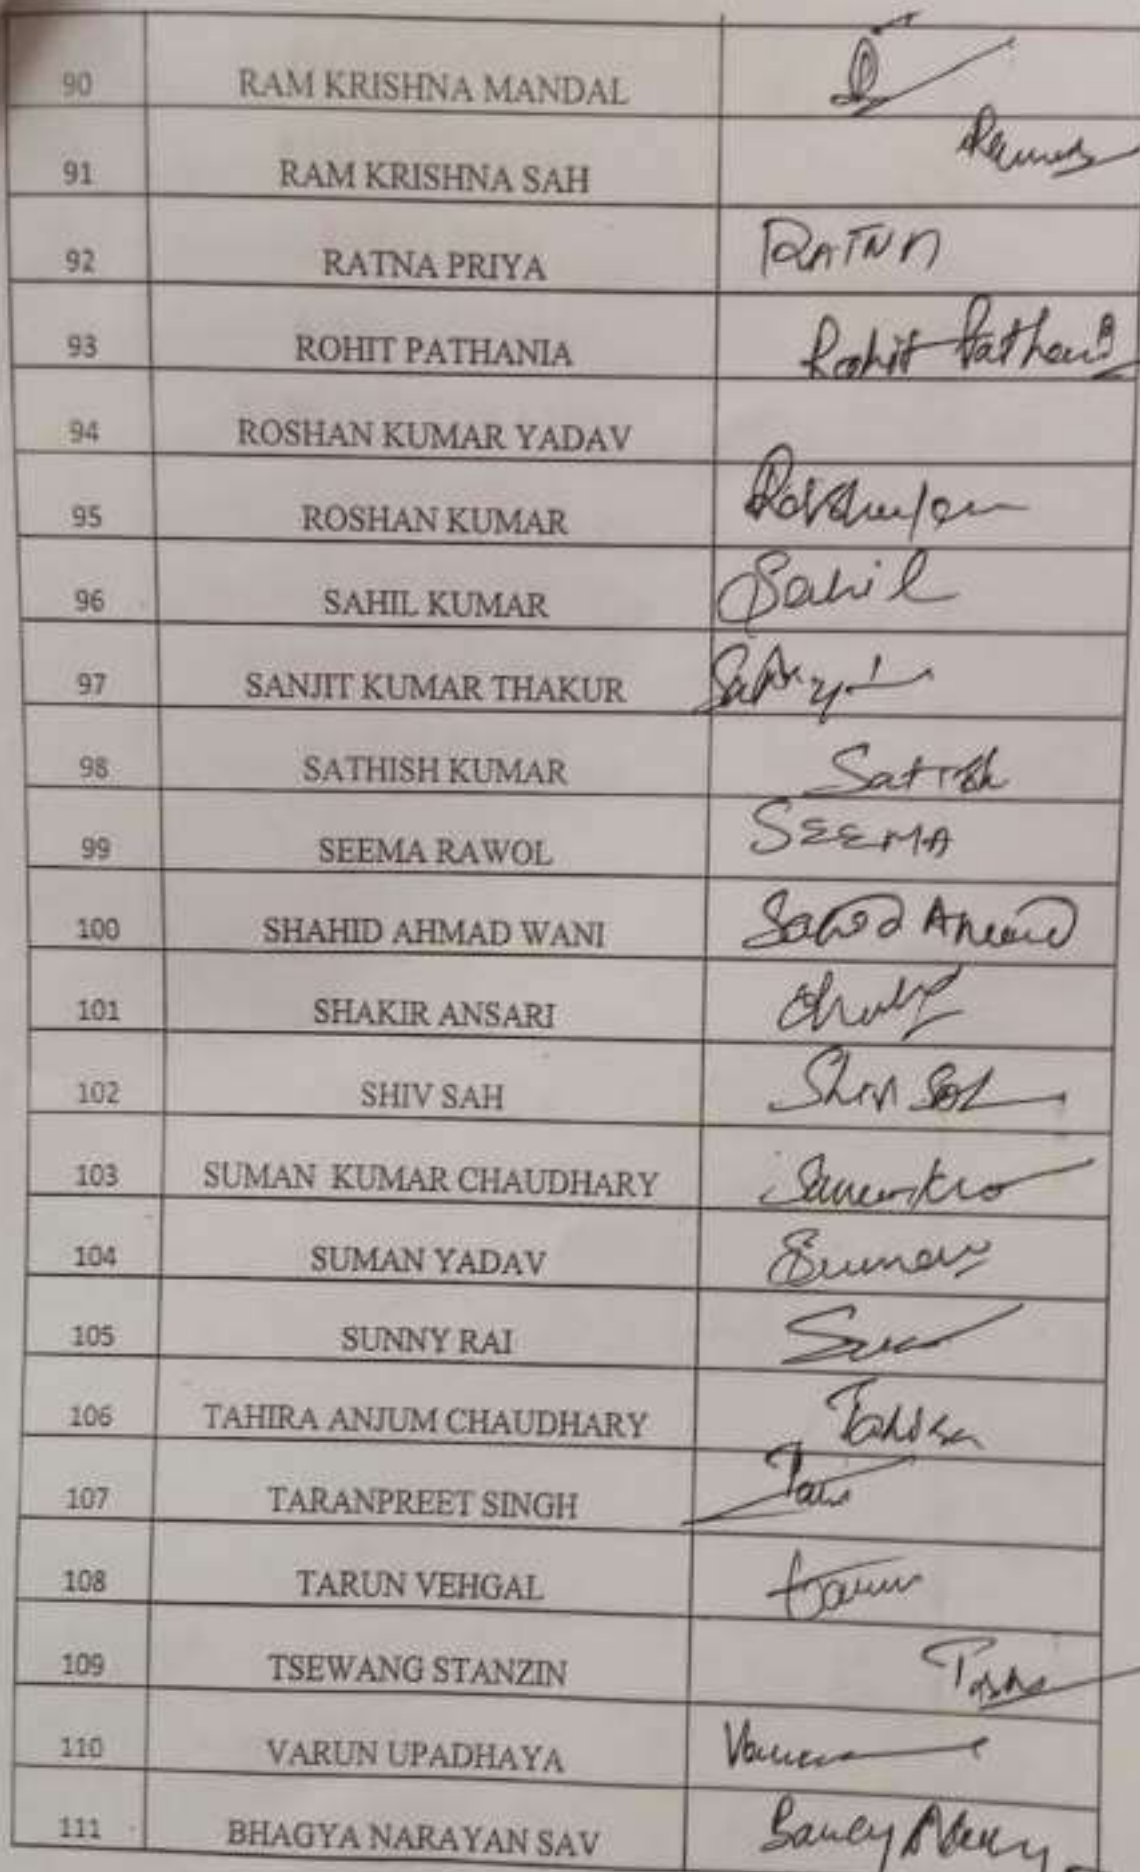 90 RAM KRISHNA MANDAL
91 RAM KRISHNA SAH
92 RATNA PRIYA RATNA
93 ROHIT PATHANIA Rohit Pathania
94 ROSHAN KUMAR YADAV
95 ROSHAN KUMAR
96 SAHIL KUMAR Sahil
97 SANJIT KUMAR THAKUR
98 SATHISH KUMAR Satish
99 SEEMA RAWOL SEEMA
100 SHAHID AHMAD WANI
101 SHAKIR ANSARI
102 SHIV SAH Shiv Sah
103 SUMAN KUMAR CHAUDHARY
104 SUMAN YADAV Suman
105 SUNNY RAI
106 TAHIRA ANJUM CHAUDHARY Tahira
107 TARANPREET SINGH
108 TARUN VEHGAL Tarun
109 TSEWANG STANZIN
110 VARUN UPADHAYA
111 BHAGYA NARAYAN SAV